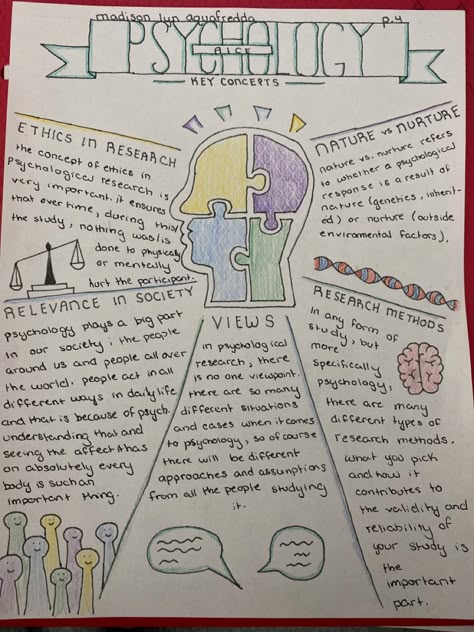 madison lyn aguafredda
p.4
PSYCHOLOGY
AICE
KEY CONCEPTS
ETHICS IN RESEARCH
the concept of ethics in
psychological research is
very important. it ensures
that over time, during this/
the study, nothing was/is
done to physically
or mentally
hurt the participant.
NATURE VS NURTURE
nature vs. nurture refers
to whether a psychological
response is a result of
nature (genetics, inherit-
ed) or nurture (outside
environmental factors).
RELEVANCE IN SOCIETY
psychology plays a big part
in our society; the people
around us and people all over
the world. people act in all
different ways in daily life
and that is because of psych.
understanding that and
seeing the affect it has
on absolutely every
body is such an
important thing.
VIEWS
in psychological
research, there
is no one viewpoint.
there are so many
different situations
and cases when it comes
to psychology, so of course
there will be different
approaches and assumptions
from all the people studying
it.
RESEARCH METHODS
In any form of
study, but
more
specifically
psychology,
there are many
different types of
research methods.
what you pick
and how it
contributes to
the validity and
reliability of
your study is
the
important
part.